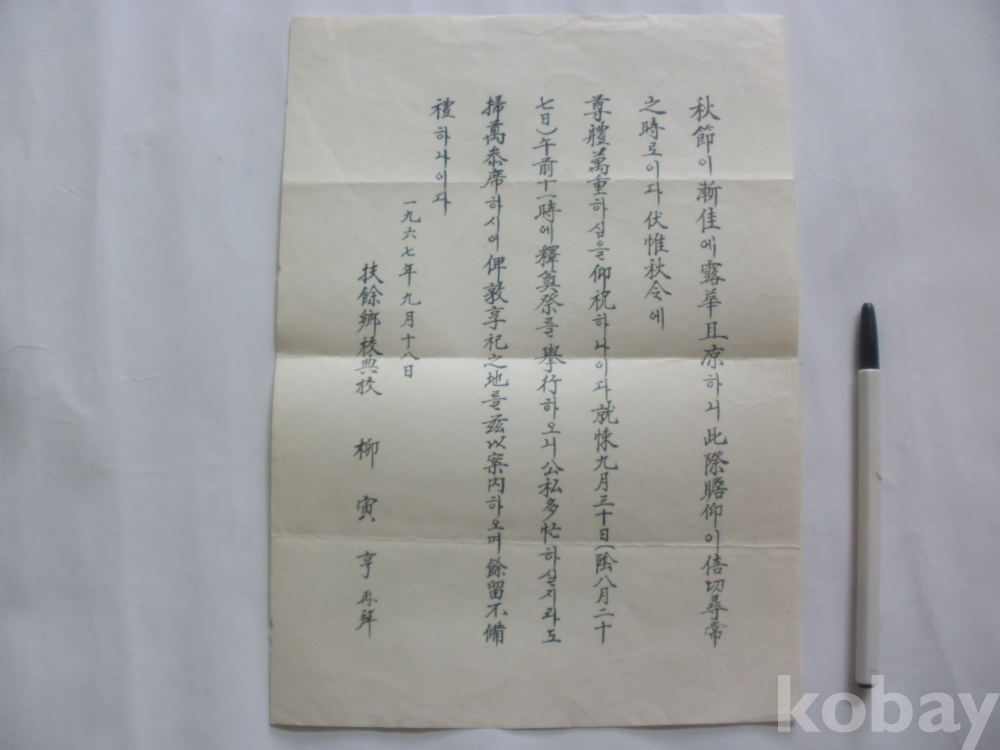 秋節이 漸佳에 露華且凉하니 此際瞻仰이 倍切尋常
之時로이다 伏惟秋令에
尊體萬重하심을 仰祝하나이다 就悚九月三十日(陰八月二十
七日)午前十一時에 釋奠祭를 擧行하오니 公私多忙하실지라도
掃萬叅席하시여 俾敦享祀之地를 玆以案內하오며 餘留不備
禮하나이다
一九六七年九月十八日
扶餘鄕校典校 柳寅亨 再拜
kobay